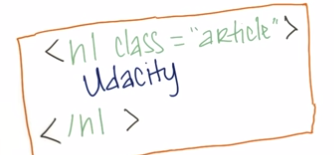 <h1 class="article">
Udacity
</h1>